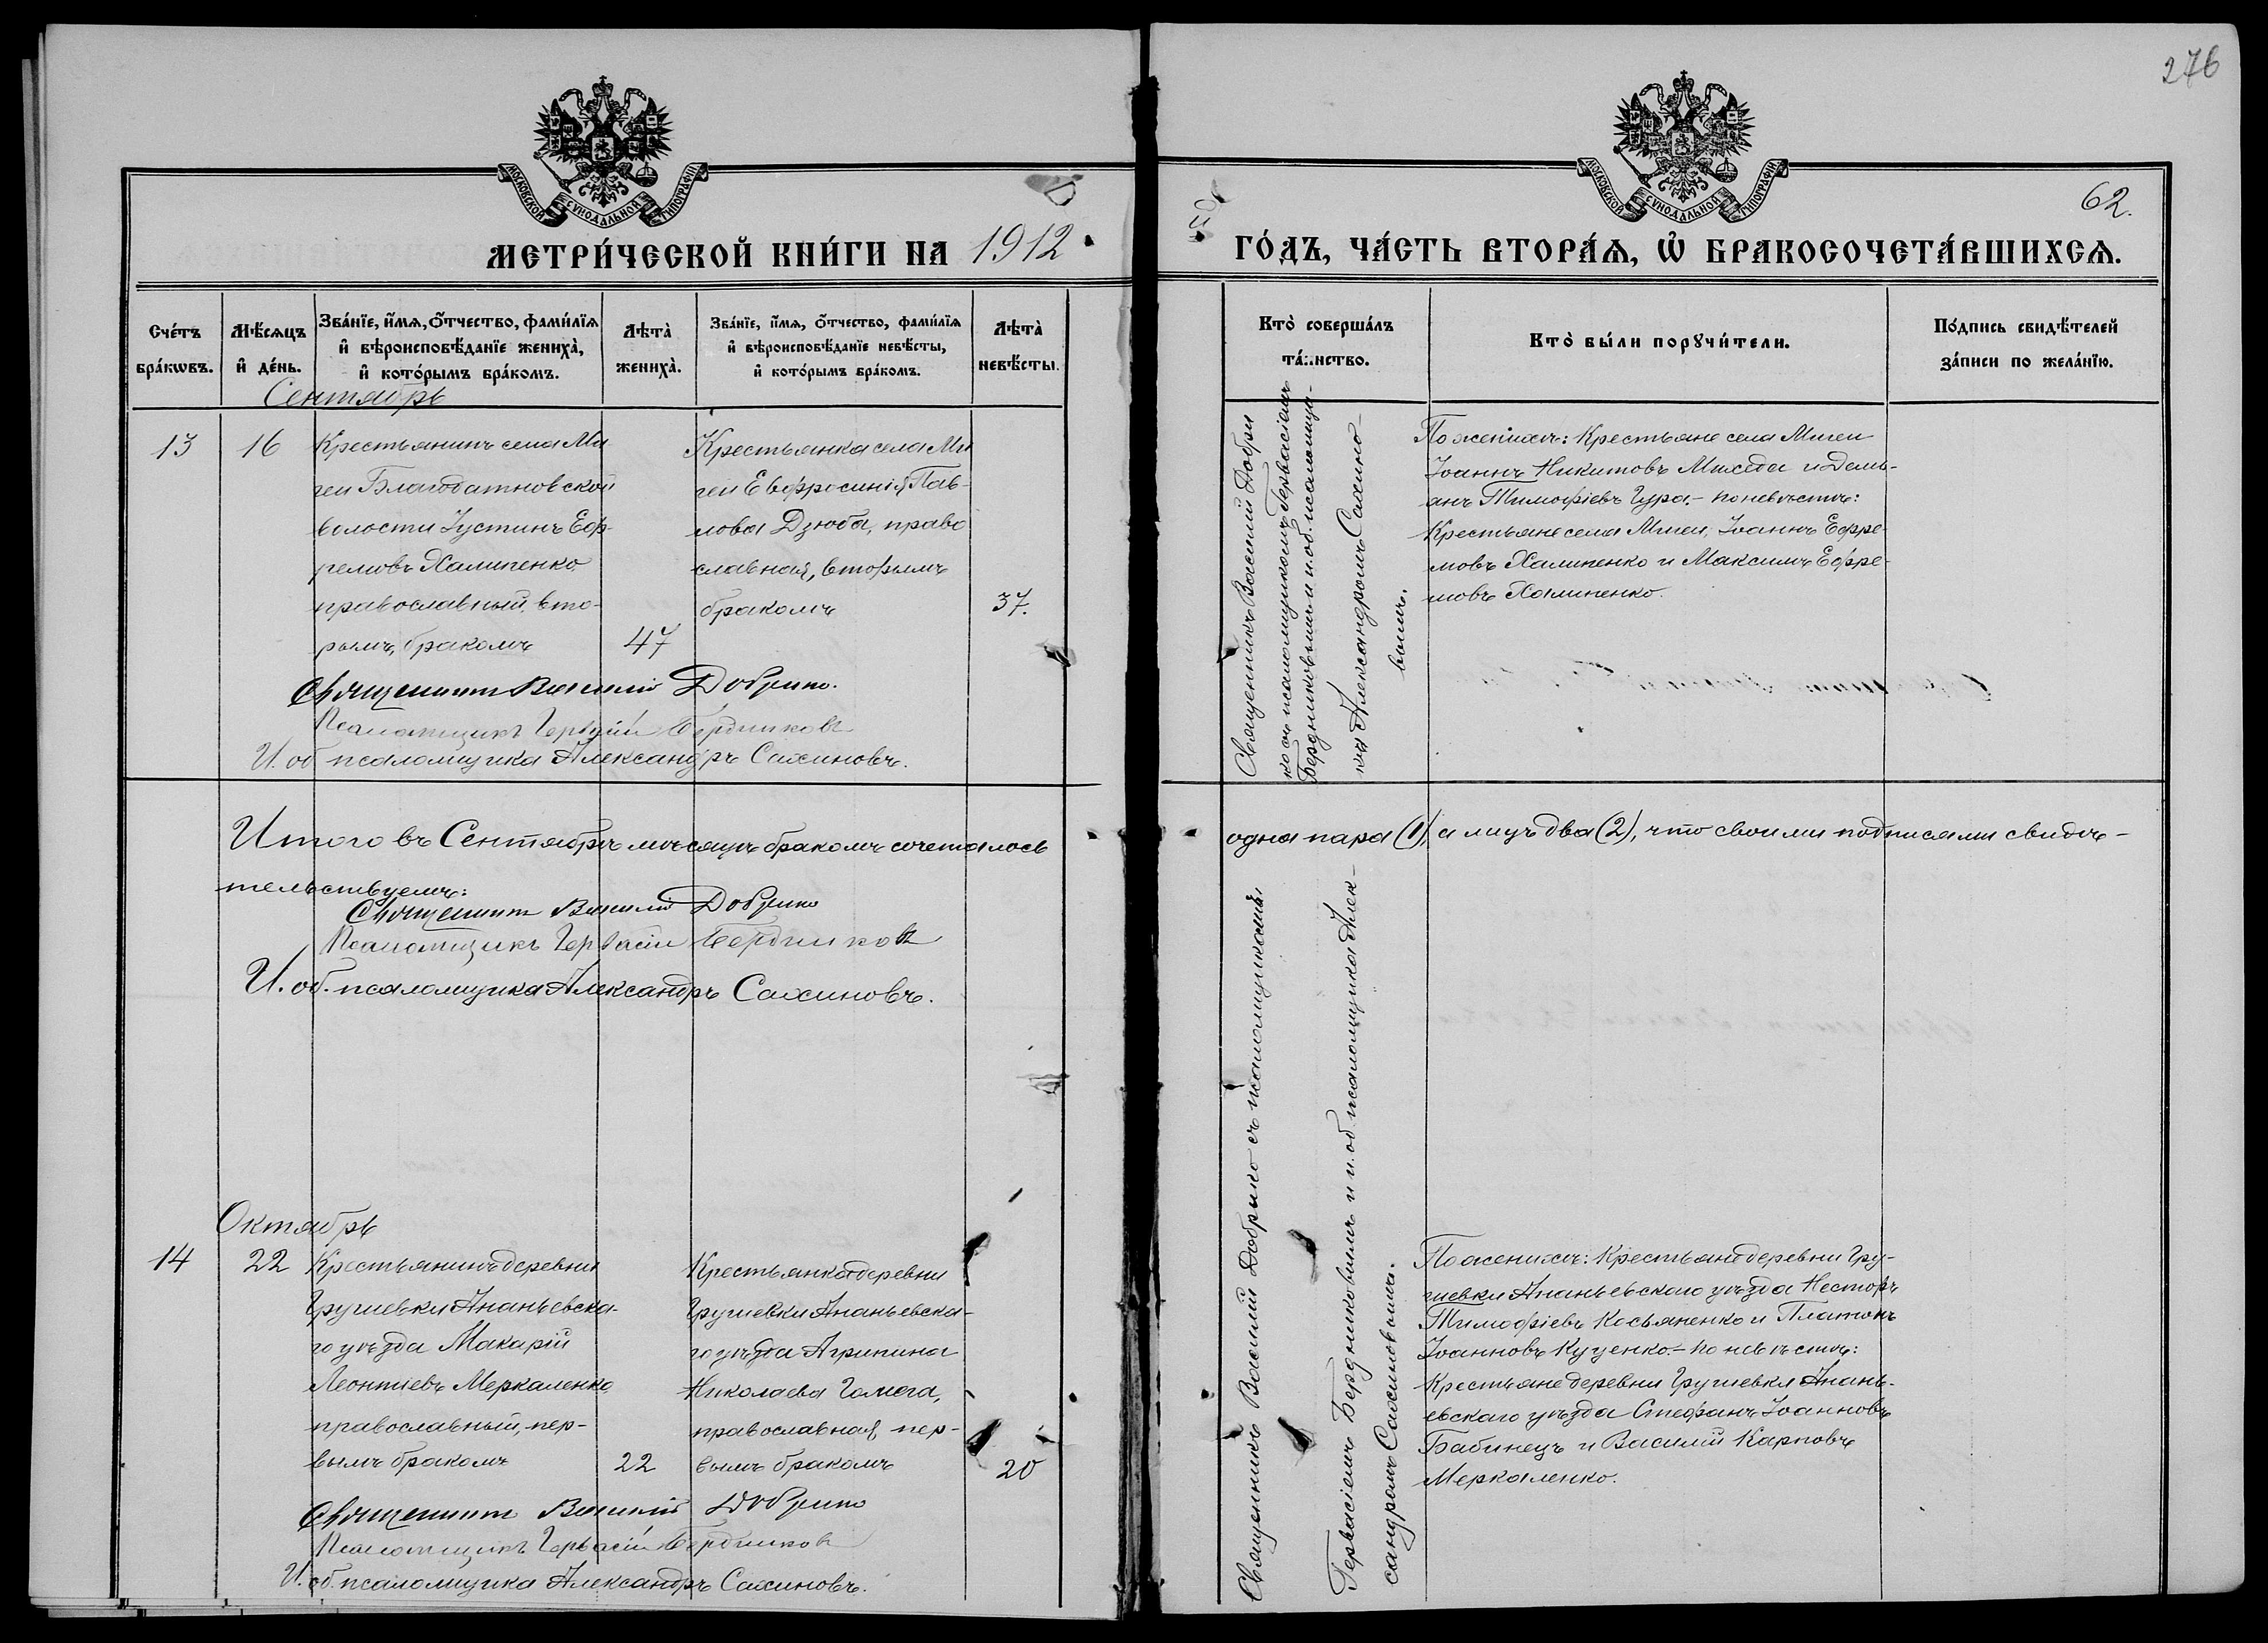 276
МОСКОВСКОЙ СУНОДАЛЬНОЙ ТИПОГРАФІИ
МОСКОВСКОЙ СУНОДАЛЬНОЙ ТИПОГРАФІИ
62.
МЕТРИ́ЧЕСКОЙ КНИ́ГИ НА 1912
ГО́ДЪ, ЧА́СТЬ ВТОРА́Ѧ, Ѡ҆ БРАКОСОЧЕТА́ВШИХСѦ.
Сче́тъ бра́кѡвъ.
Мѣ́сѧцъ и҆ де́нь.
Зва́нїе, и҆́мѧ, ѻ҆́тчество, фами́лїѧ и҆ вѣроисповѣ́данїе жениха̀, и҆ кото́рымъ бра́комъ.
Лѣта̀ жениха̀.
Зва́нїе, и҆́мѧ, ѻ҆́тчество, фами́лїѧ и҆ вѣроисповѣ́данїе невѣ́сты, и҆ кото́рымъ бра́комъ.
Лѣта̀ невѣ́сты.
Кто̀ соверша́лъ та́инство.
Кто̀ бы́ли порꙋчи́тели.
По́дпись свидѣ́телей за́писи по жела́нїю.
Сентябрь
13
16
Крестьянинъ села Ми
геи Благодатновской
волости Іустинъ Еф-
ремовъ Халипенко
православный, вто-
рымъ, бракомъ
47
Крестьянка села Ми
геи Евфросинія Пав-
лова Дзюба, право
славная, вторымъ
бракомъ
37.
Священникъ Василій Добры
ко съ псаломщикомъ Гервасіемъ
Бердниковымъ и и. об. псаломщи-
ка Александромъ Сахино-
вымъ.
По женихѣ: Крестьяне села Мигеи
Іоаннъ Никитовъ Михеда и Демь-
анъ Тимофіевъ Гура.- по невѣстѣ:
Крестьяне села Мигеи, Іоаннъ Ефре-
мовъ Халипенко и Максимъ Ефре-
мовъ Халипенко.
Священникъ Василій Добрыко.
Псаломщикъ Гервасій Бердниковъ
И. об. псаломщика Александръ Сахиновъ.
Итого въ Сентябрѣ мѣсяцѣ бракомъ сочеталось
одна пара (1), а лицъ два (2), что своими подписями свидѣ-
тельствуемъ:
Священникъ Василій Добрыко
Псаломщикъ Гервасій Бердниковъ
И. об. псаломщика Александръ Сахиновъ.
Октябрь
14
22
Крестьянинъ деревни
Грушевки Ананьевска-
го уѣзда Макарій
Леонтіевъ Меркаленко
православный, пер-
вымъ бракомъ
22
Крестьянка деревни
Грушевки Ананьевска-
го уѣзда Агрипина
Николаева Гомега,
православная, пер-
вымъ бракомъ
20
Священникъ Василій Добрыко съ псаломщикомъ
Гервасіемъ Бердниковымъ и и. об. псаломщика Алек-
сандромъ Сахиновымъ.
По женихѣ: Крестьяне деревни Гру-
шевки Ананьевскаго уѣзда Несторъ
Тимофіевъ Косьяненко и Платонъ
Іоанновъ Куценко.- по невѣстѣ:
Крестьяне деревни Грушевки Анань-
евскаго уѣзда Стефанъ Іоанновъ
Бабинецъ и Василій Карповъ
Меркаленко.
Священникъ Василій Добрыко
Псаломщикъ Гервасій Бердниковъ
И. об. псаломщика Александръ Сахиновъ.